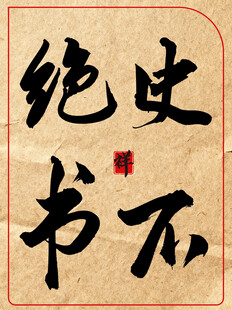 史不
绝书
祥